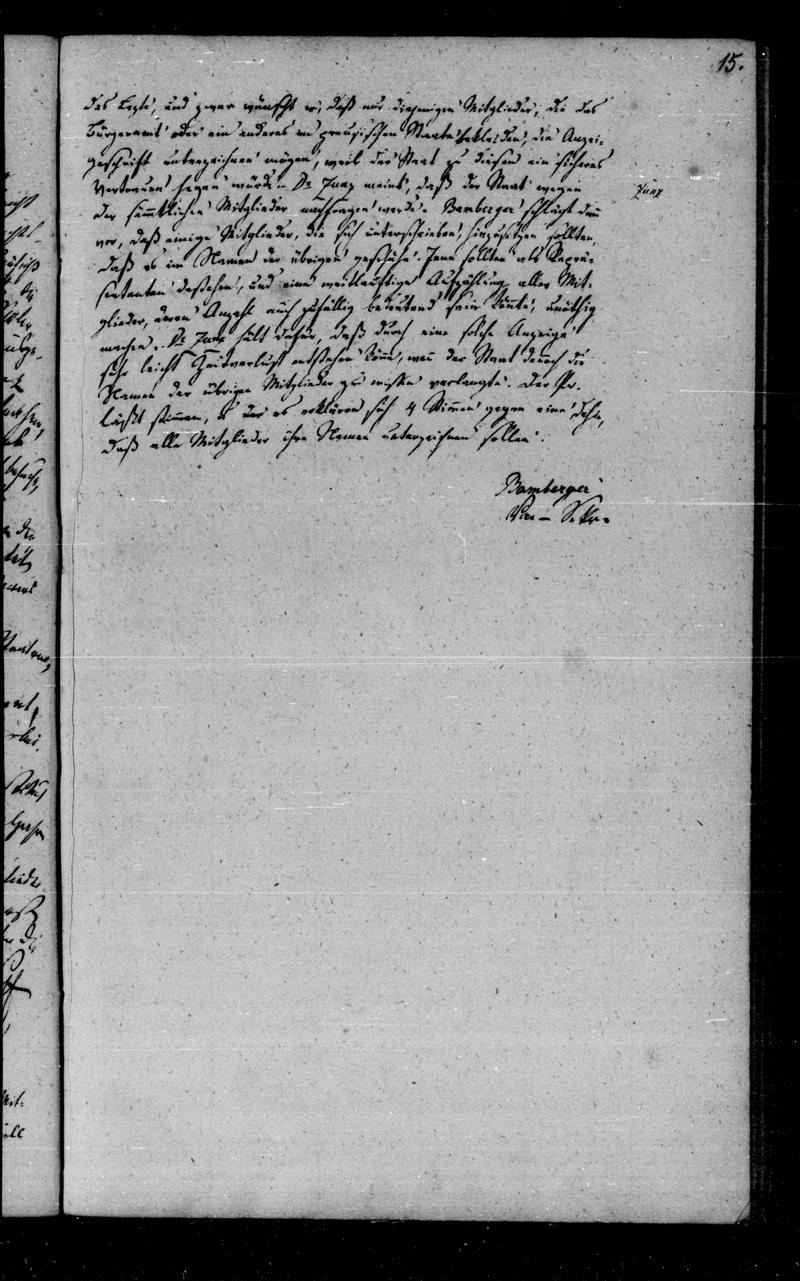 15.
das Letzte, und zwar wünscht er, daß nur diejenigen Mitglieder, die das
Bürgeramt oder ein anderes im preusischen Staate bekleiden, die Anzei-
geschrift unterzeichnen mögen, weil der Staat zu diesen ein sicheres
Vertrauen hegen würde. Dr Zunz meint, daß der Staat wegen
Zunz
der sämmtlichen Mitglieder nachfragen werde. Bamberger schlägt
vor, daß einige Mitglieder, die sich unterschrieben, hinzusetzen sollten,
daß es im Namen der übrigen geschähe. Jene sollten als Reprä-
sentanten dastehen, und eine weitläuftige Aufzählung aller Mit-
glieder, deren Anzahl auch zufällig bedeutend sein könnte, unnöthig
machen. Dr Zunz hält dafür, daß durch eine solche Anzeige
sehr leicht Zeitverlust entstehen könne, wenn der Staat die
Namen der übrigen Mitglieder zu wissen verlangte. Der Pr.
läßt stimmen, es erklären sich 4 Stimmen gegen eine dahin,
daß alle Mitglieder ihre Namen unterzeichnen sollen.
Bamberger
Vice-Sekr.